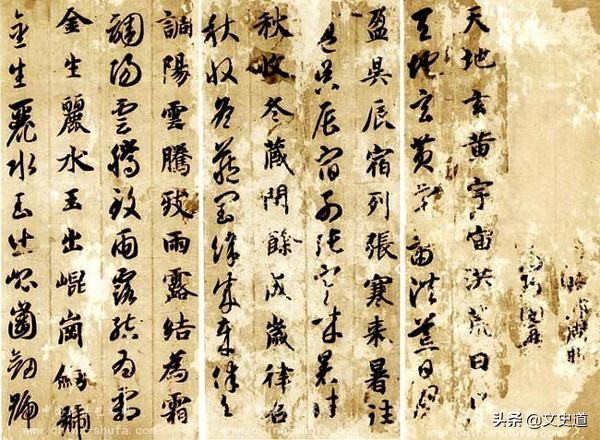 天地玄黄宇宙洪荒日
天地玄黄宇宙洪荒日月
盈昃辰宿列張寒来暑往
盈昃辰宿列張寒来暑往
秋收冬藏閏餘成歲律召
秋收冬藏閏餘成歲律召
調陽雲騰致雨露結為霜
調陽雲騰致雨露結為霜
金生麗水玉出崐崗劒號
金生麗水玉出崐崗劒號
头条 @文史道